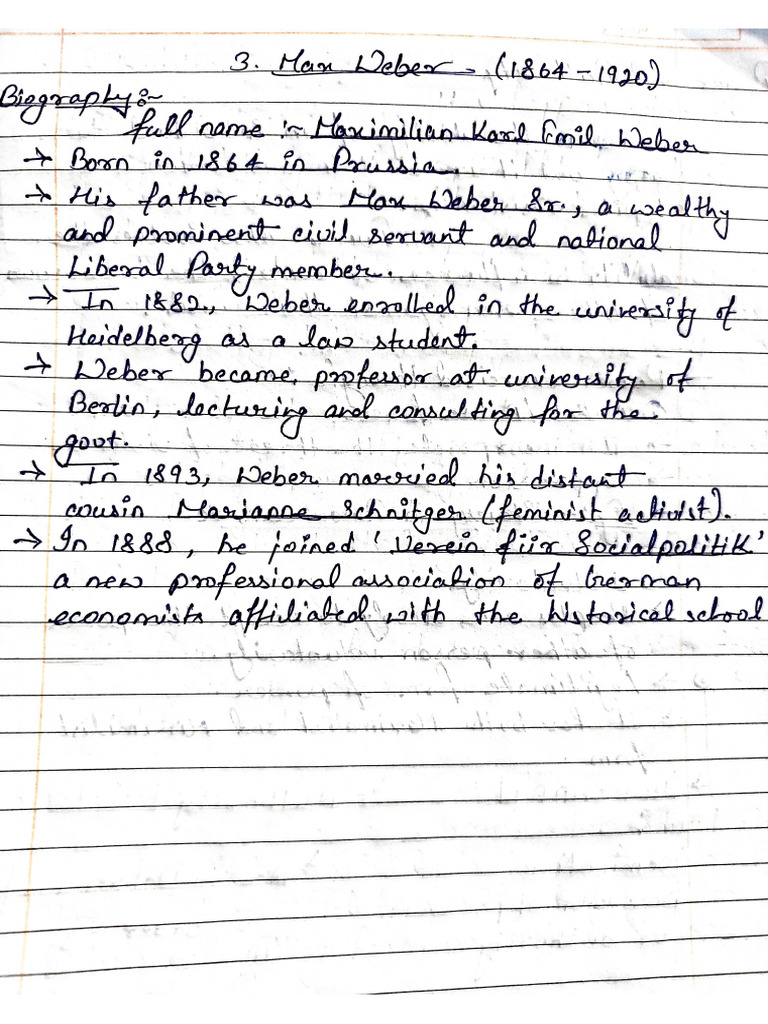 3. Max Weber - (1864-1920)
Biography :-
full name :- Maximilian Karl Emil Weber
→ Born in 1864 in Prussia.
→ His father was Max Weber Sr., a wealthy
and prominent civil servant and national
Liberal Party member.
→ In 1882, Weber enrolled in the university of
Heidelberg as a law student.
→ Weber became professor at university of
Berlin, lecturing and consulting for the
govt.
→ In 1893, Weber married his distant
cousin Marianne Schnitger (feminist activist).
→ In 1888, he joined 'Verein fiir Socialpolitik'
a new professional association of German
economists affiliated with the historical school